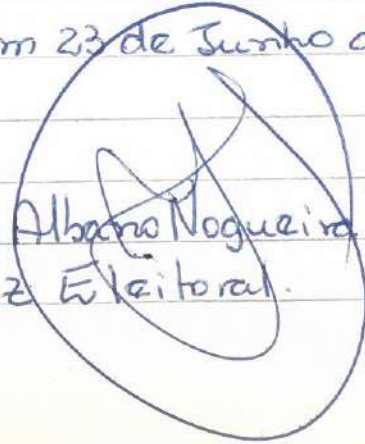 m 23 de Junho d
Albano Nogueira
z Eleitoral.